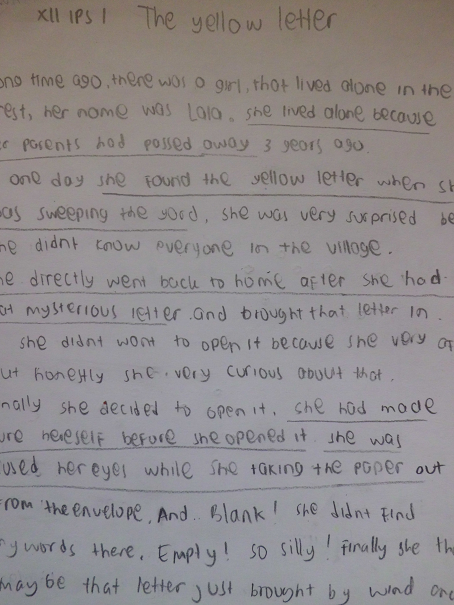 XII IPS 1 The yellow letter
ong time ago, there was a girl, that lived alone in the
rest, her name was Lala. she lived alone because
er parents had passed away 3 years ago.
one day she found the yellow letter when sh
was sweeping the yard, she was very surprised be
he didnt know everyone in the village.
he directly went back to home after she had
ot mysterious letter and brought that letter in.
she didnt want to open it because she very af
ut honestly she very curious about that.
nally she decided to open it, she had made
ure hereself before she opened it she was
used her eyes while she taking the paper out
From the envelope, And.. Blank! she didnt find
ny words there. Empty! so silly! Finally she th
maybe that letter just brought by wind and